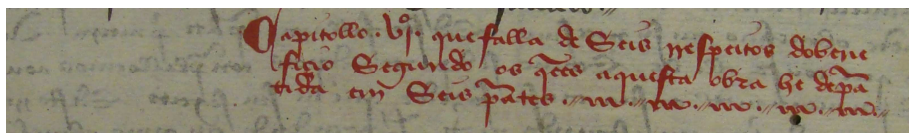 Capitollo . vjº. que falla de Seis rrespeitos do bene
ficio Segundo os q̃ees aquesta obra he depar̃
tida em Seis par̃tes